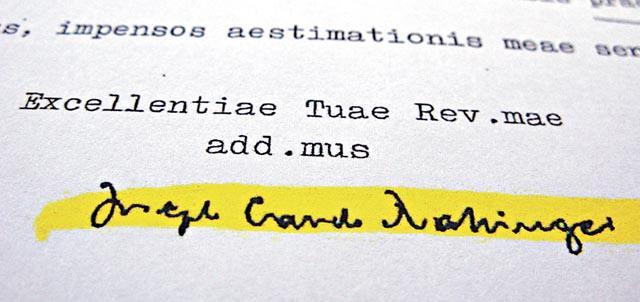 s, impensos aestimationis meae ser
Excellentiae Tuae Rev.mae
add.mus
Joseph Card. Ratzinger